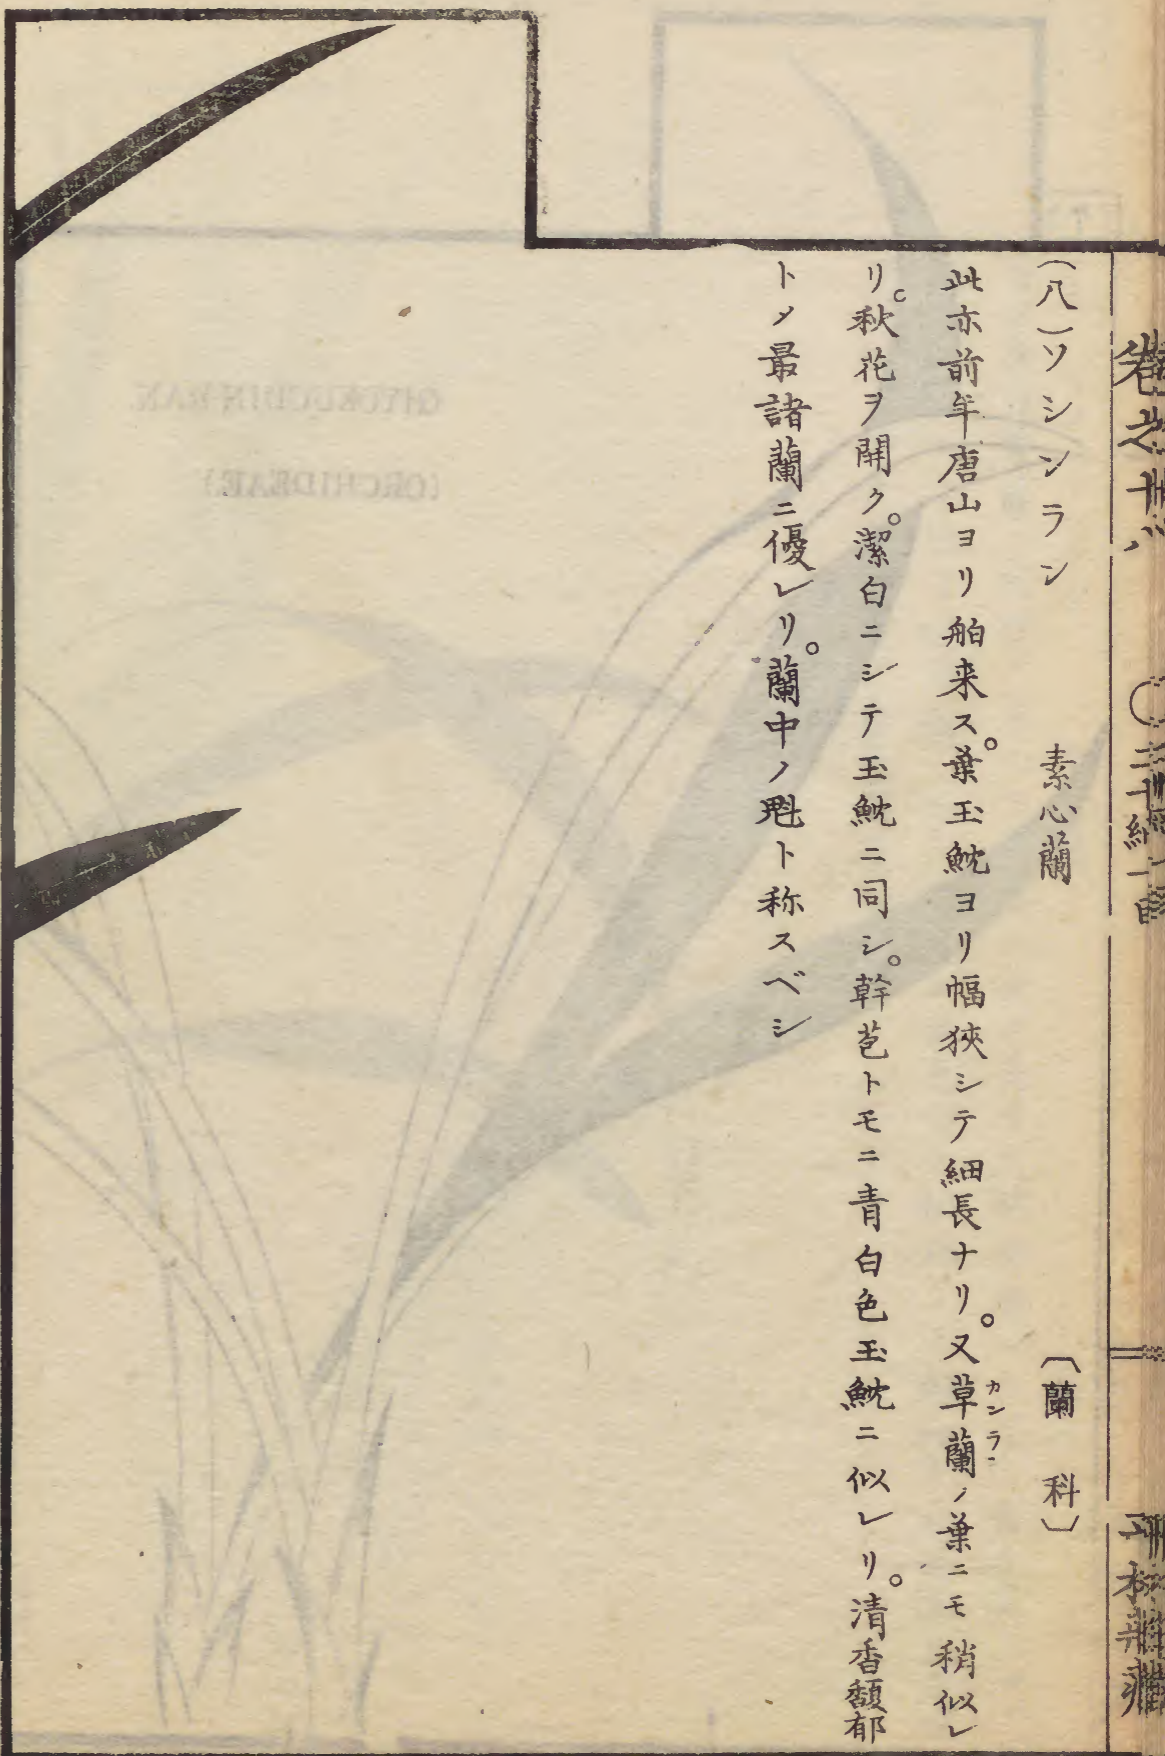 (八)ソシンラン 素心蘭 〔蘭科〕
此亦前年唐山ヨリ舶来ス。葉玉魫ヨリ幅狹シテ細長ナリ。又草蘭ノ葉ニモ稍似レ
カンラ
リ。秋花ヲ開ク。潔白ニシテ玉魫ニ同シ。幹苞トモニ青白色玉魫ニ似レリ。清香馥郁
トメ最諸蘭ニ優レリ。蘭中ノ魁ト称スベシ